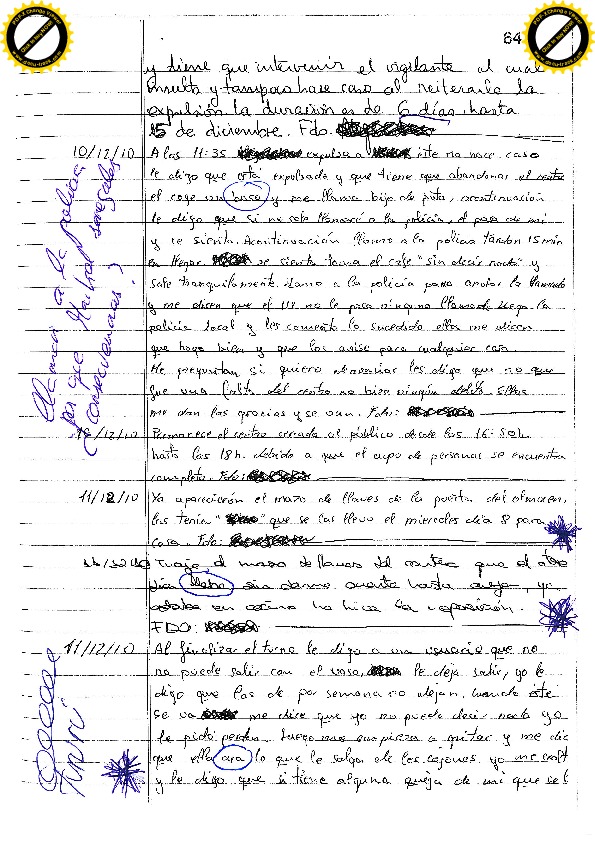 64
y tiene que intervenir el vigilante al cual
insulta y tampoco hace caso al reiterarle la
expulsión la duración es de 6 días hasta
15 de diciembre. Fdo.
10/12/10 A las 11:35 expulsa a este no hace caso
le digo que está expulsado y que tiene que abandonar el centro
el coge un y me llama hijo de puta, acontinuación
le digo que si no sale llamaré a la policía, el pasa de mi
y se sienta. Acontinuación llamo a la policía tardan 15 min
en llegar. se sienta toma el café "sin decir nada" y
sale tranquilamente. llamo a la policía para anular la llamada
y me dicen que el no le pasa ninguna llamada. Llega la
policía local y les comento lo sucedido ellos me dicen
que hago bien y que los avise para cualquier cosa
Me preguntan si quiero denunciar les digo que no que
fue una falta del centro no hizo ningún delito. Ellos
me dan las gracias y se van. Fdo:
Llamar a la policía
por que
consecuencias?
12/10 Permanece el centro cerrado al público desde las 16:50h
hasta las 18h. debido a que el cupo de personas se encuentra
completo. Fdo:
11/12/10 Ya aparecierón el mazo de llaves de la puerta del almacen,
las tenía " " que se las llevo el miercoles día 8 para
casa. Fdo:
Traje el mazo de llaves del centro que el otro
día llebe sin darme cuenta hasta
estaba en cocina no hice la reposición.
FDO
11/12/10 Al finalizar el turno le digo a una usuaria que no
no puede salir con el vaso, le deja salir, yo le
digo que los de por semana no dejan, cuando este
se va me dice que yo no puedo decir nada yo
le pido perdon, luego me empieza a gritar y me dice
que ella ara lo que le salga de los cojones, yo me
y le digo que si tiene alguna queja de mi que se l